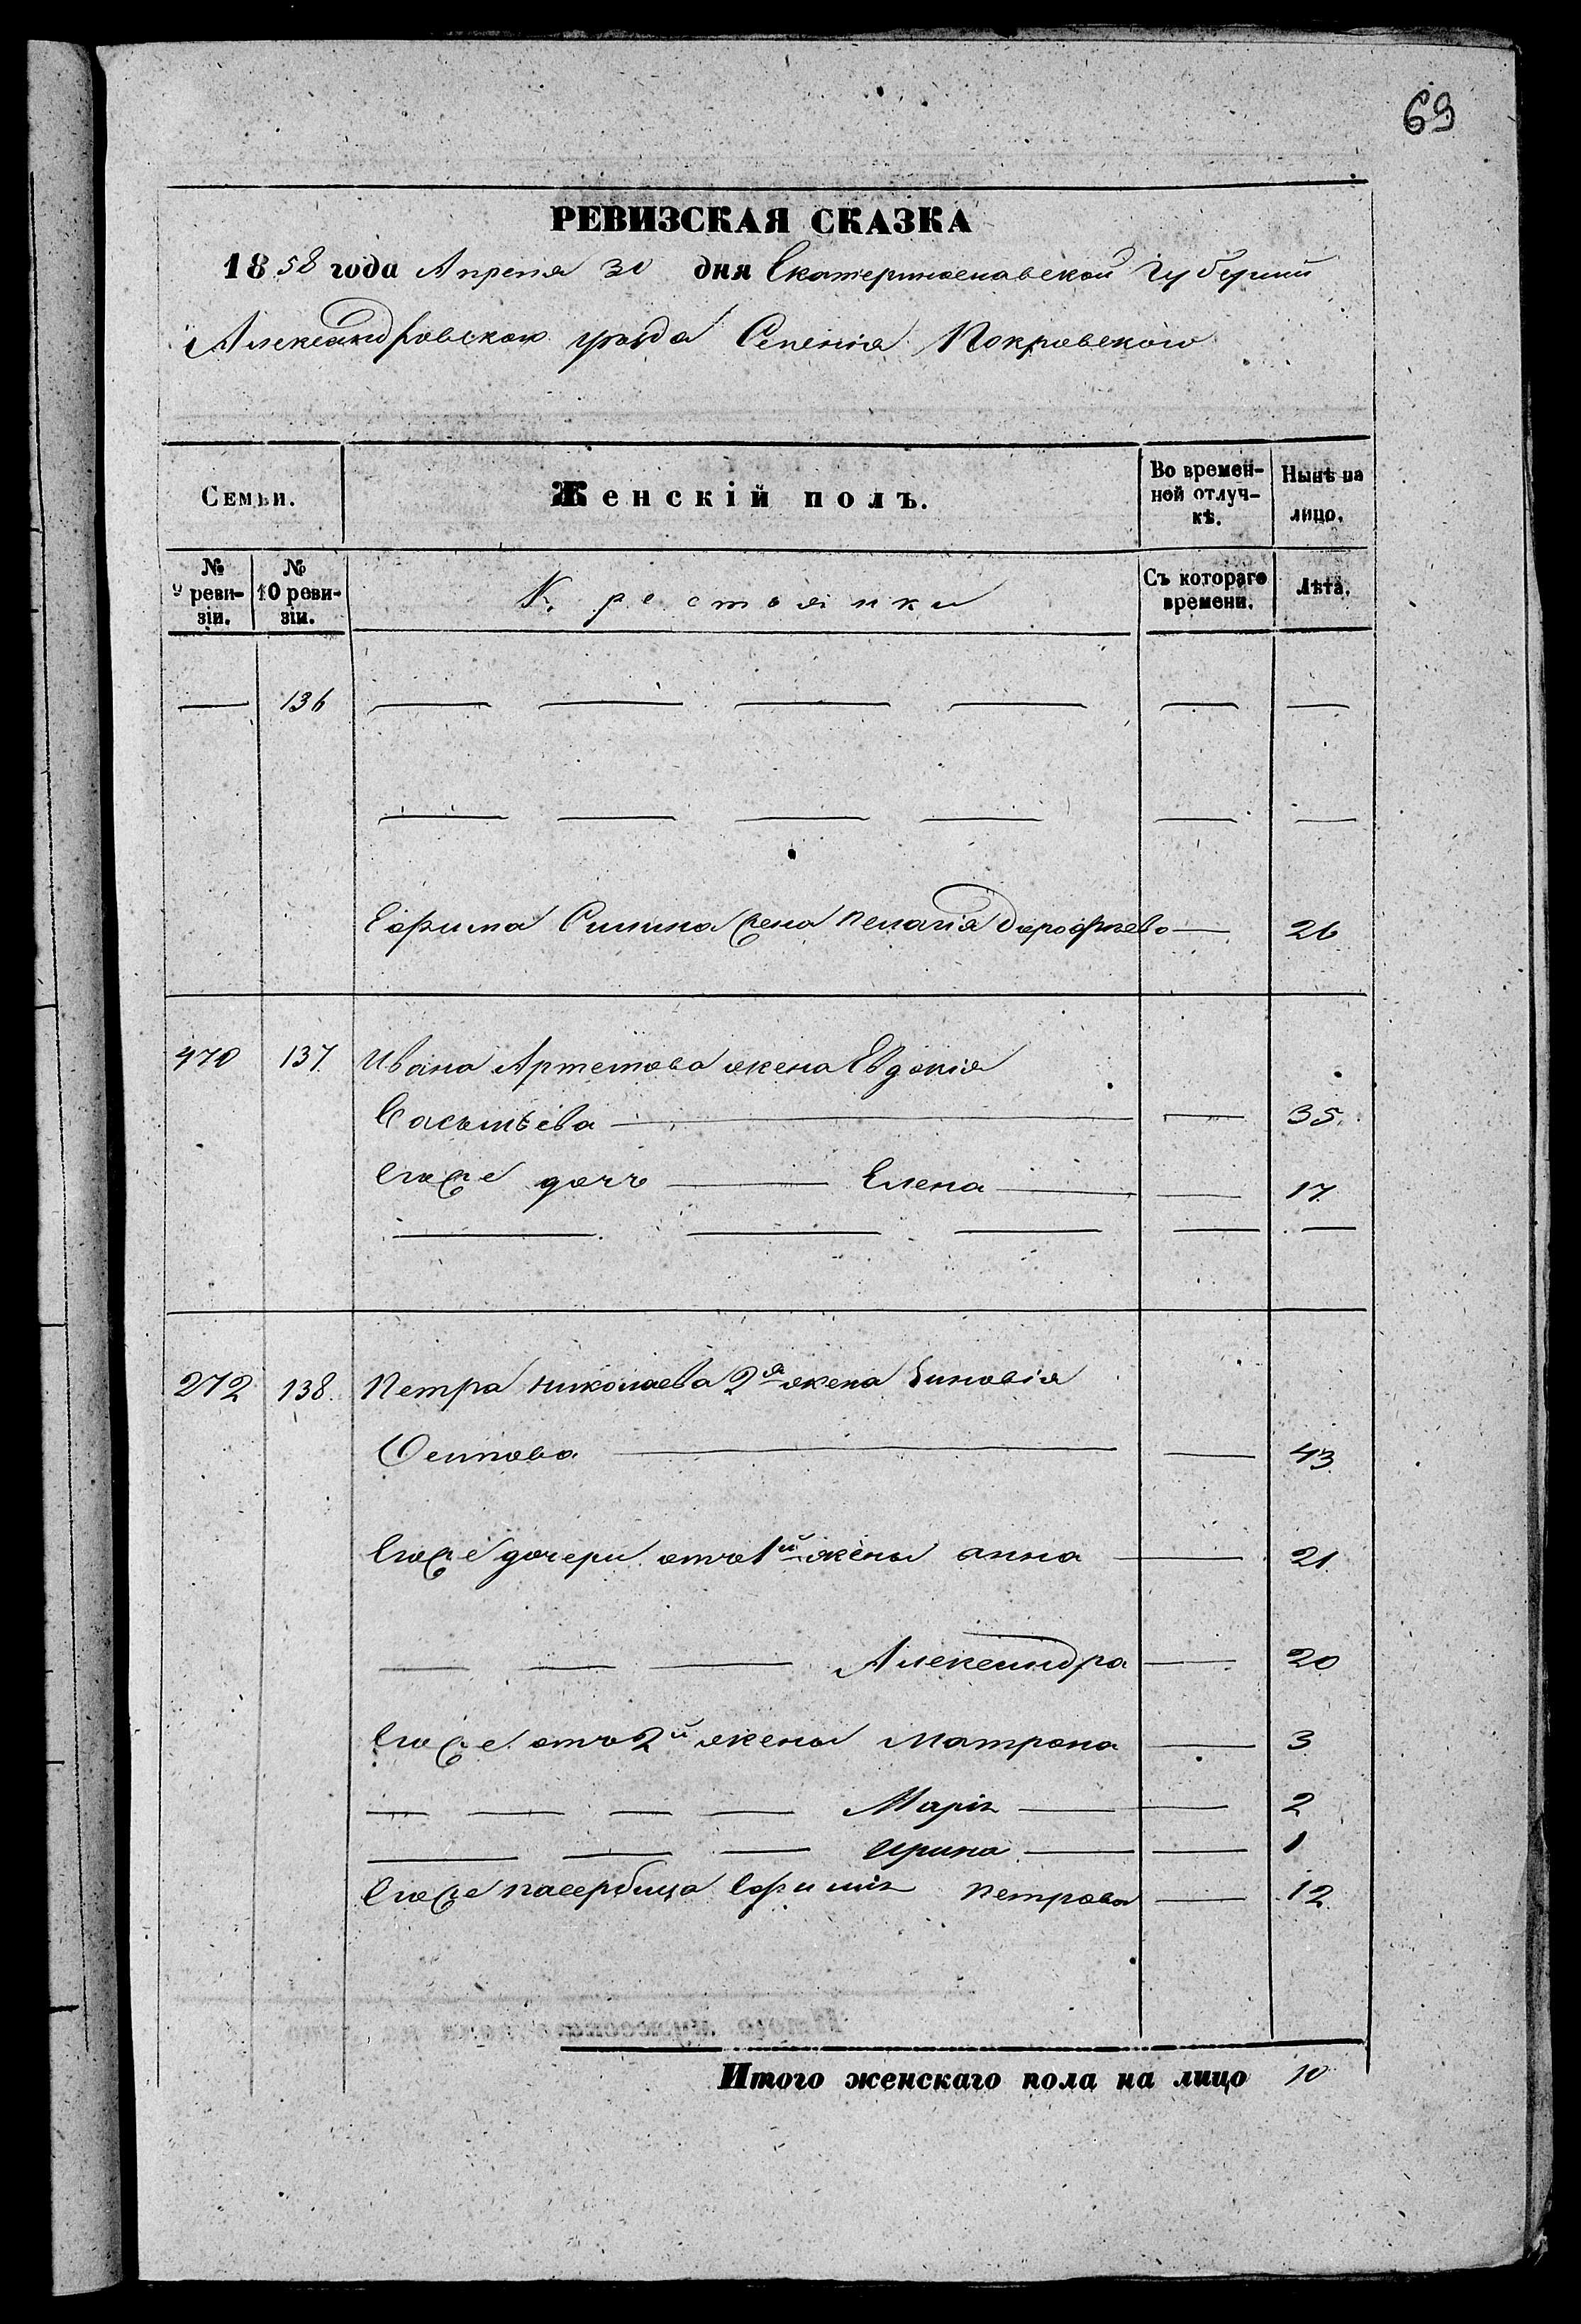 69
РЕВИЗСКАЯ СКАЗКА
1858 года Апреля 30 дня Екатеринославской Губернии
Александровскаго уезда Селения Покровского
Семьи. Женскій полъ. Во времен-ной отлуч-кѣ. Нынѣ на лицо.
№ 9 реви-зіи. № 10 реви-зіи. Крестьянки Съ котораго времени. Лѣта.
— 136 — — — — — —
— — — — — —
Ефима Силина жена Пелагія Дорофѣева — 26
470 137 Ивана Артемова жена Евдокія
Васильева — — 35.
Егоже дочь — Елена — — 17
— — — — —
272 138. Петра Николаева 2я жена Зиновія
Осипова — — 43
Егоже дочери отъ 1й жены Анна — 21
— — — Александра — 20
Егоже отъ 2й жены Матрона — 3
— — — — Марія — — 2
— — — Ирина — — 1
Егоже пасербица Ефимія Петрова — 12
Итого женскаго пола на лицо 10